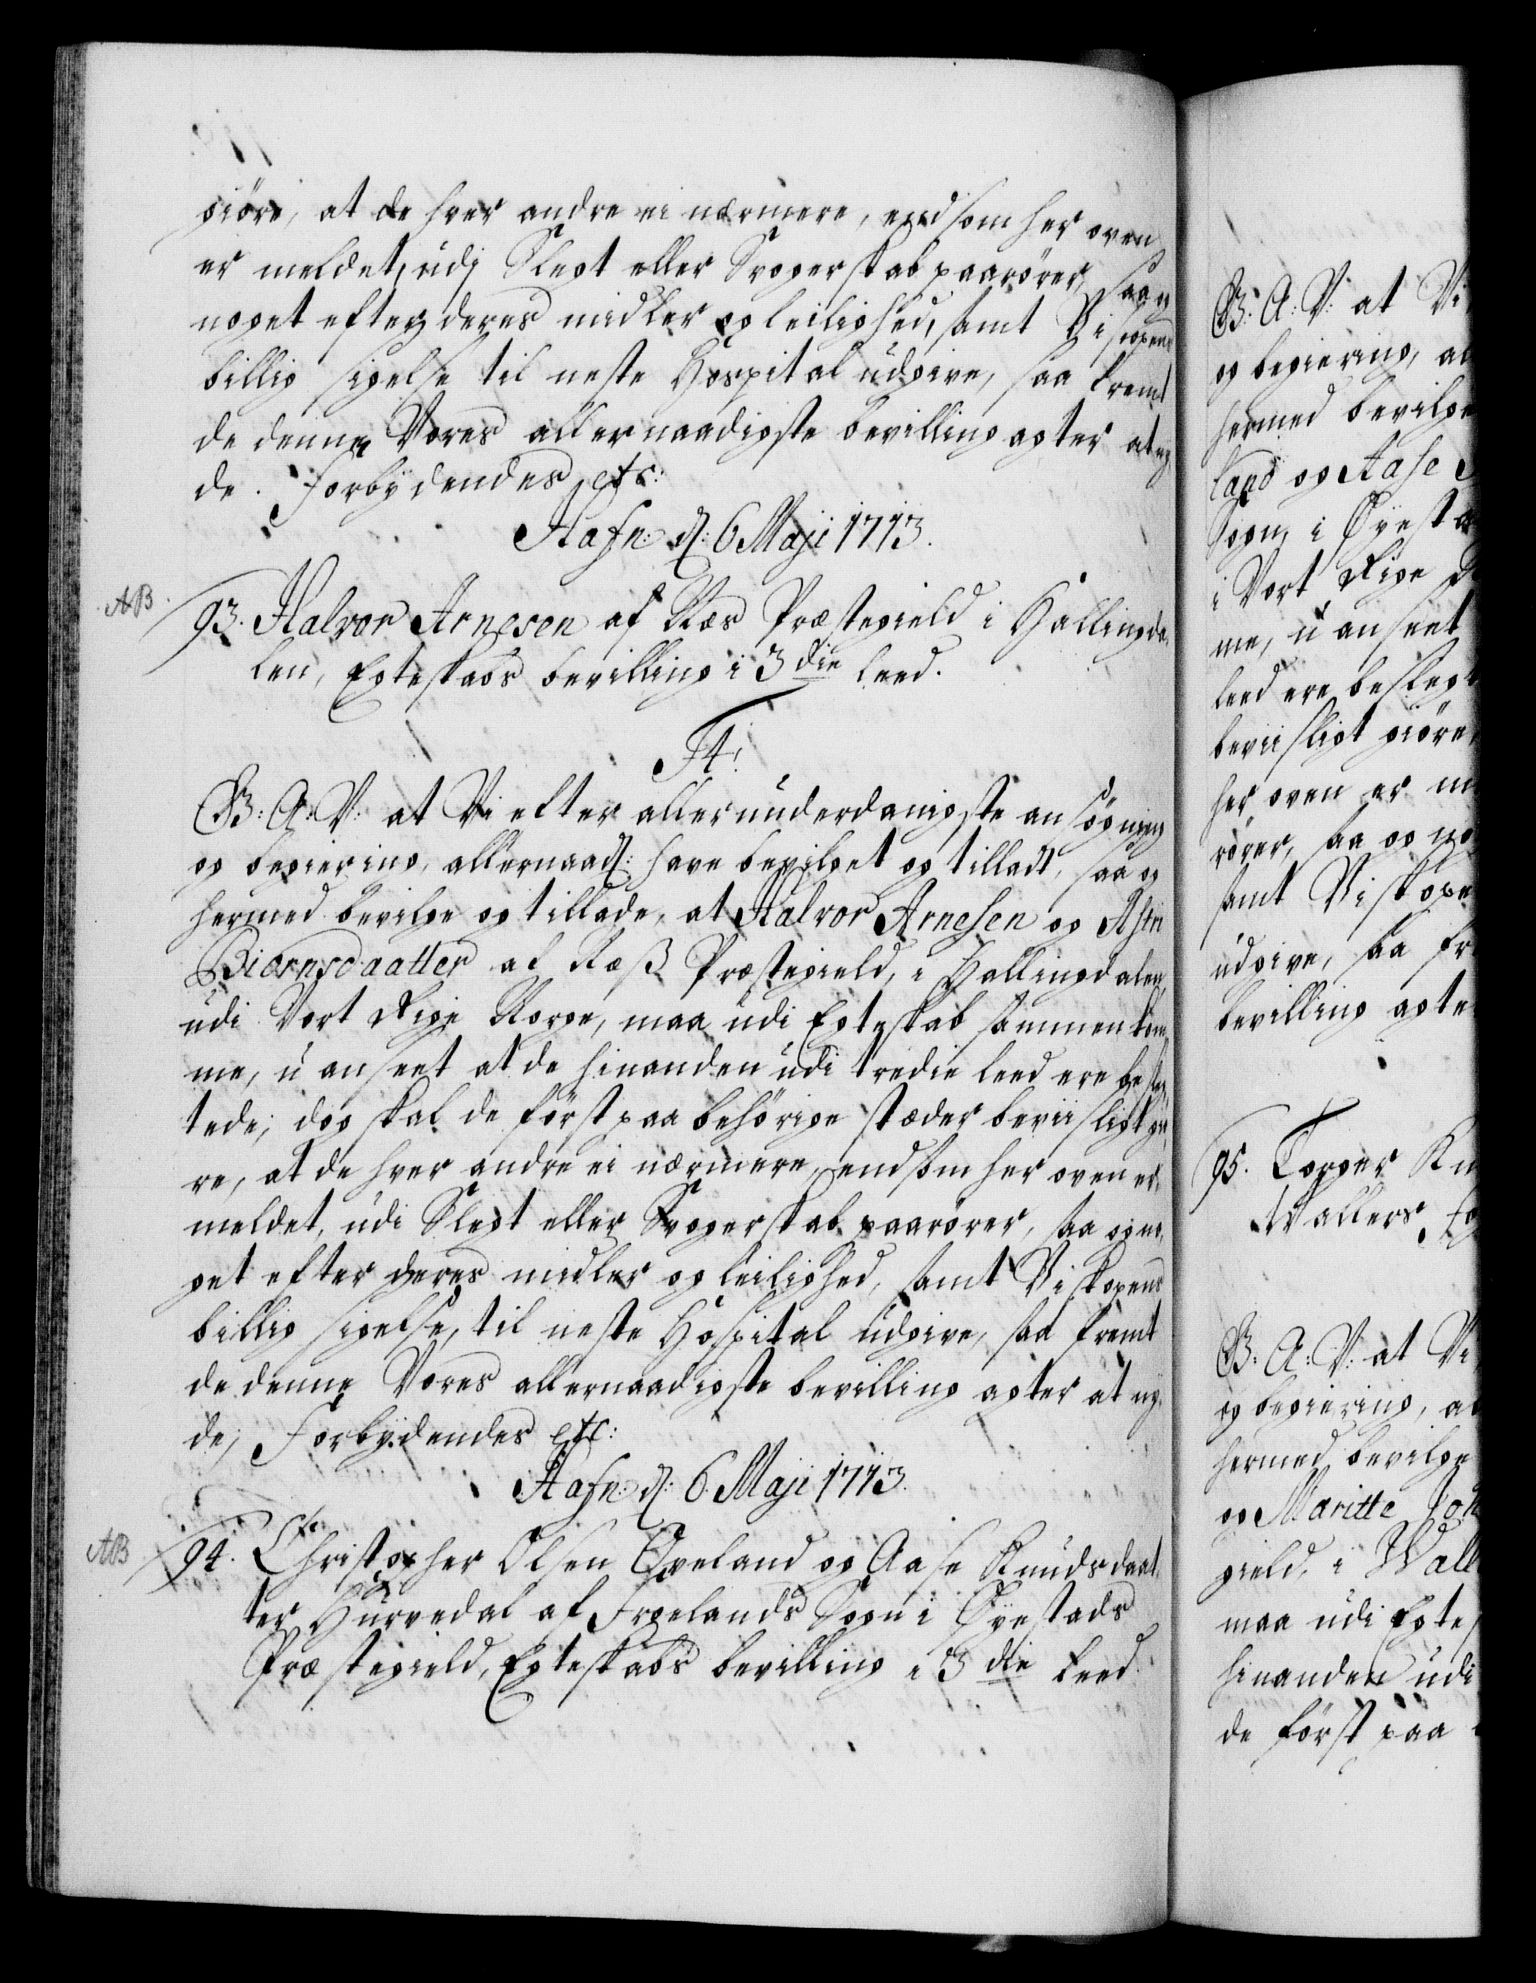 giöre, at de hver andre ei nærmere, end som her oven
er meldet, udj Slegt eller Svogerskab paarører, saa og
noget efter deres midler og leilighed, samt Viscopens
billig sigelse til neste Hospital udgive, saa fremt
de denne Vores allernaadigste bevilling agter at ny-
de. Forbydendes etc:
Hafn: d: 6 Maji 1773.
AB
93. Halvor Arnesen af Næs Præstegield i Hallingda-
len, Egteskabs bevilling i 3die leed.
F4!
G: A: V: at Vi efter allerunderdanigste ansögning
og begiering, allernaad: have bevilget og tilladt, saa og
hermed bevilge og tillade, at Halvor Arnesen og Astri
Biørnsdaatter af Næss Præstegield, i Hallingdalen,
udi Vort Rige Norge, maa udi Egteskab sammenkom-
me, u anseet at de hinanden udi tredie leed ere besleg-
tede; dog skal de först paa behörige stæder beviisligt giö-
re, at de hver andre ei nærmere, end som her oven er
meldet, udi Slegt eller Svogerskab paarører, saa og no-
get efter deres midler og leilighed, samt Viskopens
billig sigelse, til neste Hospital udgive, saa fremt
de denne Vores allernaadigste bevilling agter at ny-
de, Forbydendes etc:
Hafn: d: 6. Maji 1773.
AB
94. Christopher Olsen Øveland og Aase Knudsdaat-
ter Hurvedal af Froelands Sogn i Øyestads
Præstegield, Egteskabs bevilling i 3die Leed.
G: A: V: at Vi
og begiering, al
hermed bevilge
land og Aase
Sogn, i Øyesta
i Vort Rige
me, u anseet
leed ere beslegt
beviisligt giöre
her oven er m
rörer, saa og no
samt Viskope
udgive, saa fr
bevilling agte
95. Torger Kn
Wallers, 
G: A: V: at Vi
og begiering, al
hermed bevilge
og Maritte Joh
gield, i Wall
maa udi Egtes
hinanden udi
de först paa